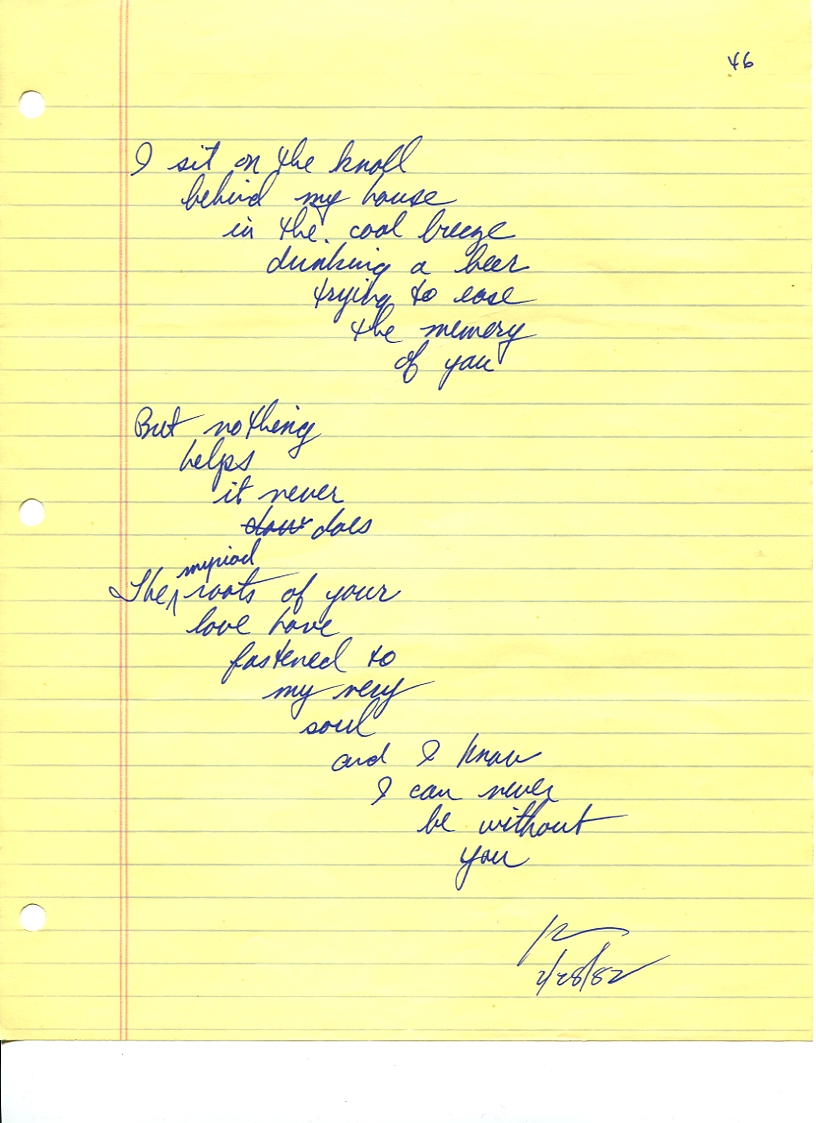 46
I sit on the knoll
behind my house
in the cool breeze
drinking a beer
trying to ease
the memory
of you
But nothing
helps
it never
does
myriad
The roots of your
love have
fastened to
my very
soul
and I know
I can never
be without
you
2/28/82